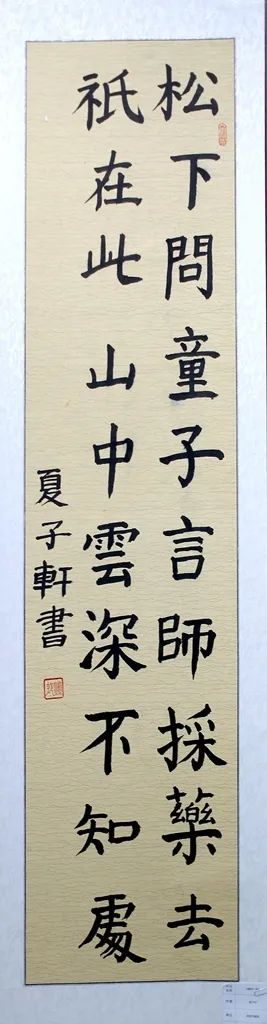 松下問童子言師採藥去
祇在此山中雲深不知處
夏子軒書